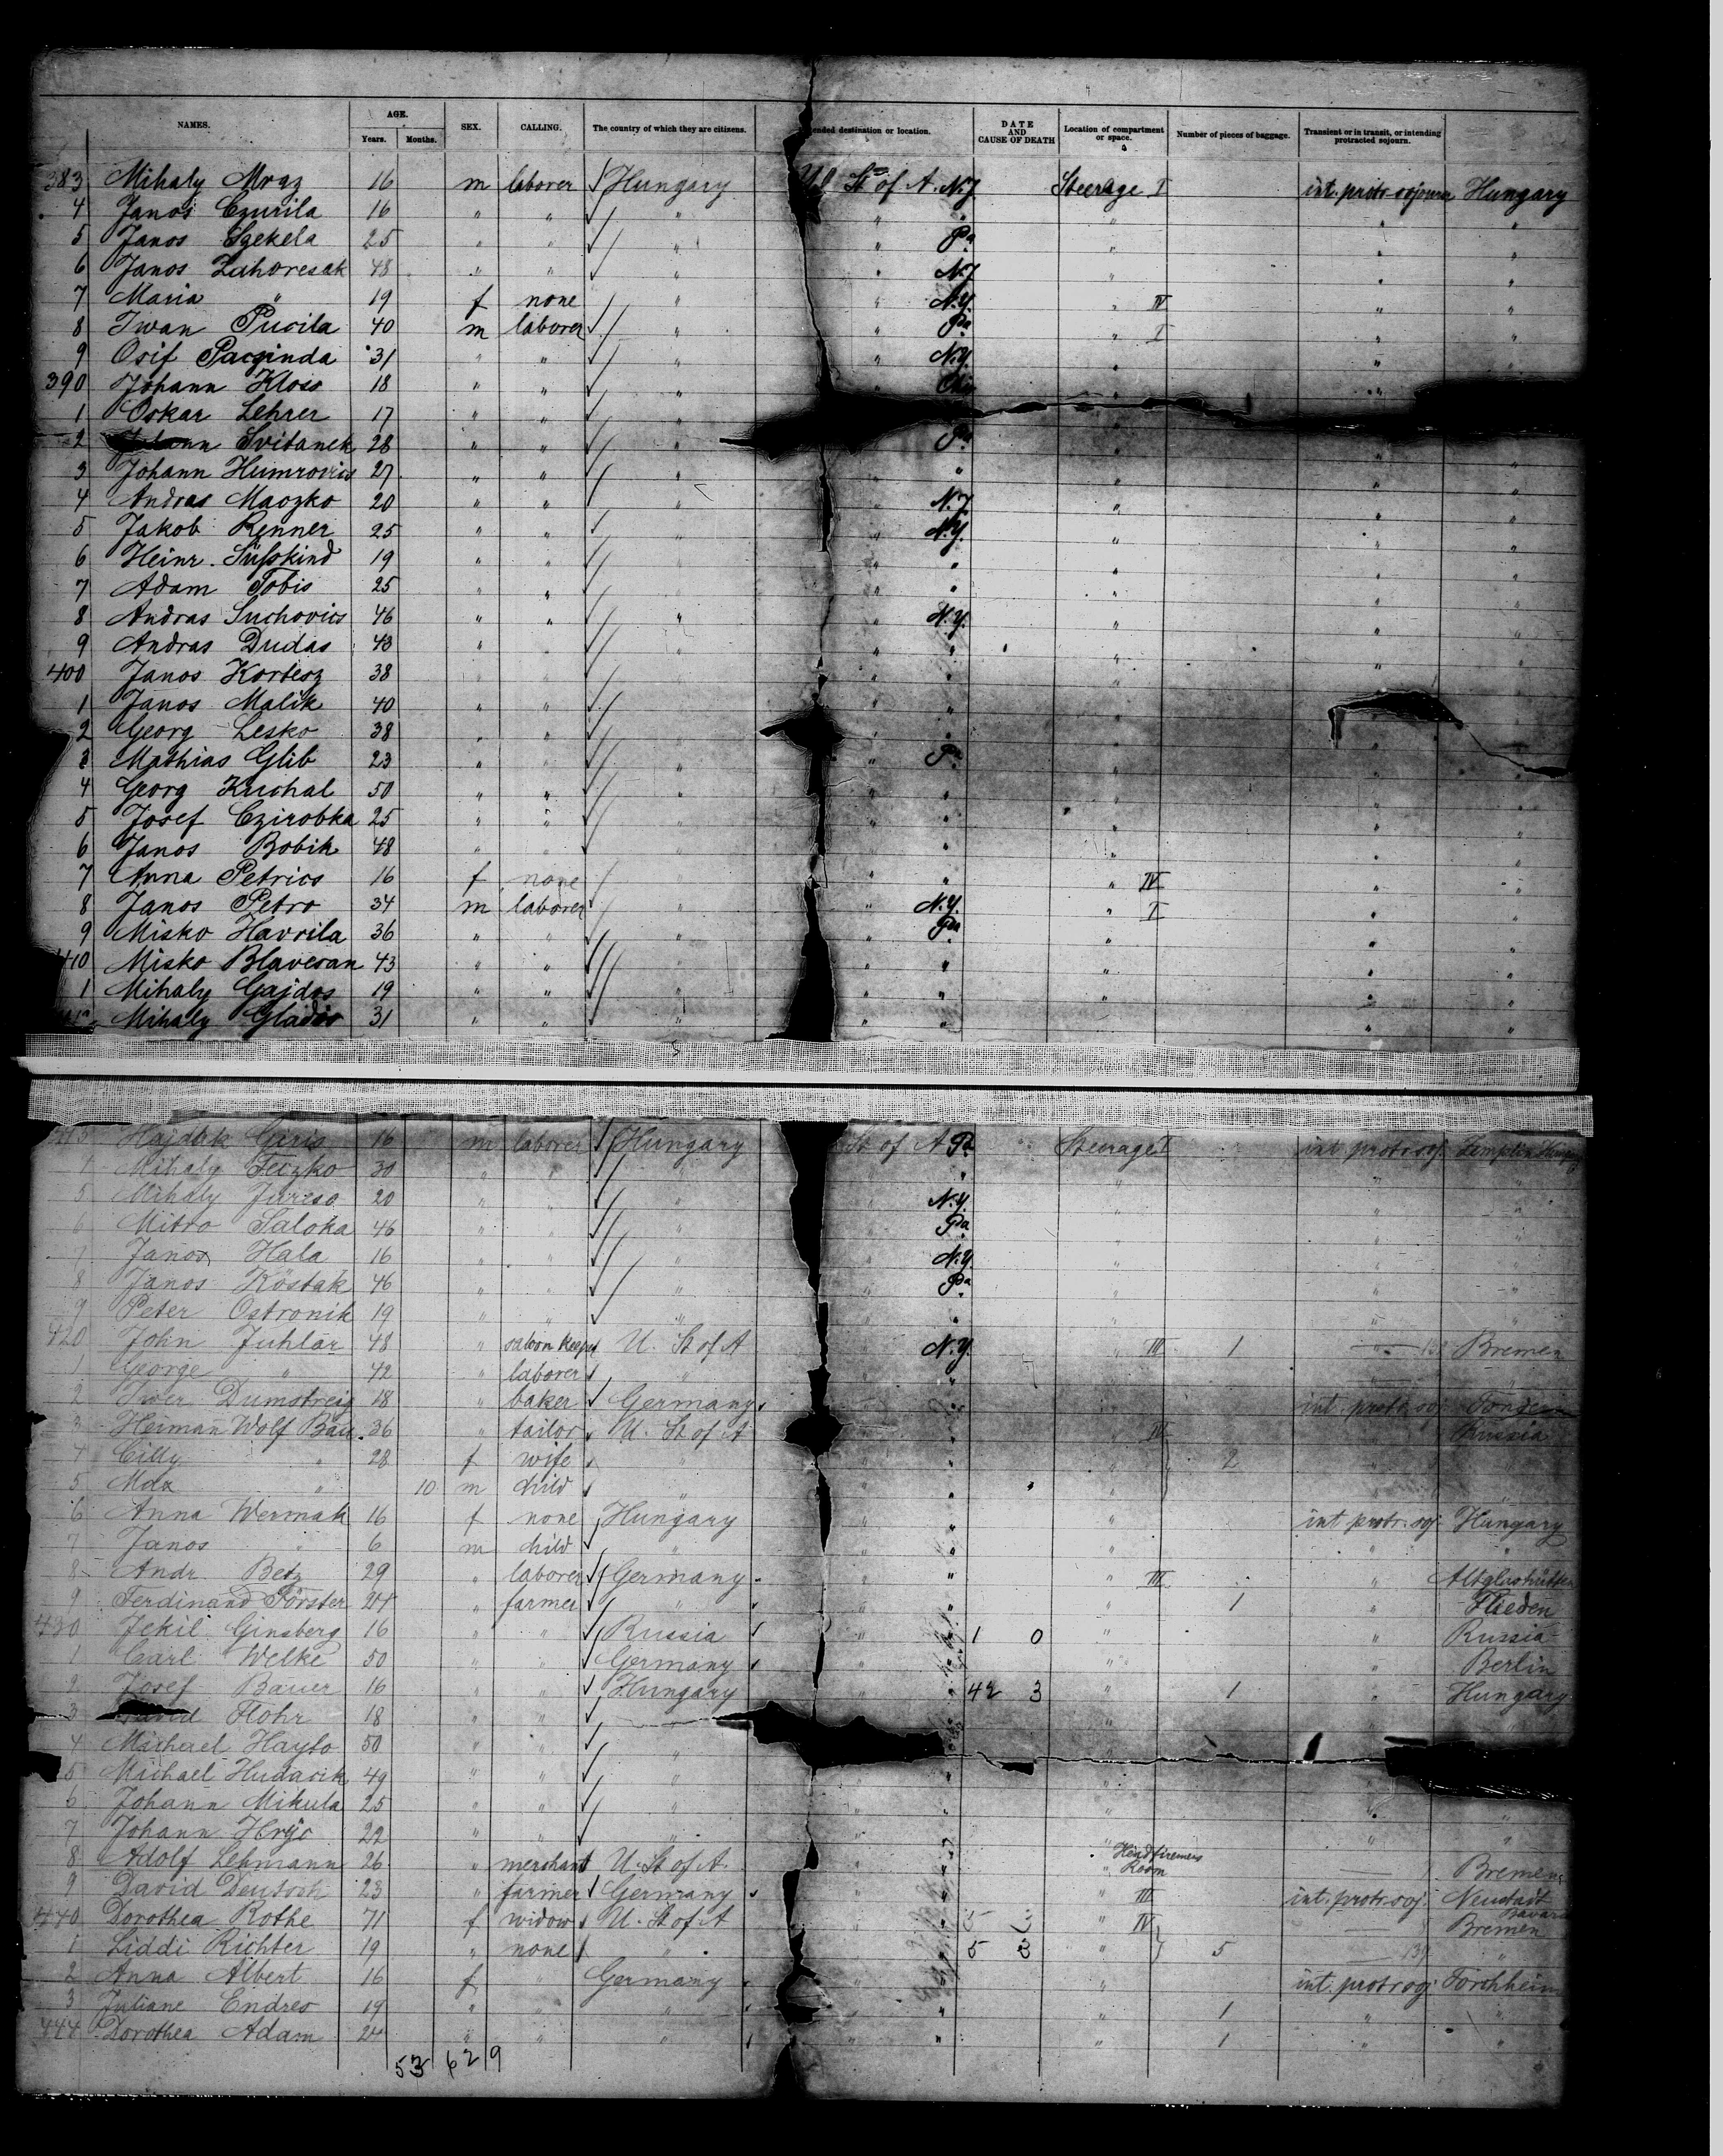 NAMES. AGE. SEX. CALLING. The country of which they are citizens. ended destination or location. DATE AND CAUSE OF DEATH Location of compartment or space. Number of pieces of baggage. Transient or in transit, or intending protracted sojourn.
Years. Months.
383 Mihaly Mraz 16 m laborer Hungary St of A. N.J. Steerage I int. protr. sojourn Hungary
4 Janos Czurila 16 " " " " " " " "
5 Janos Szekela 25 " " " " Pa " " "
6 Janos Zahoresak 48 " " " " N.J. " " "
7 Maria " 19 f none " " N.Y. " IV " "
8 Iwan Pucila 40 m laborer " " Pa " I " "
9 Osif Paczinda 31 " " " " N.Y. " " "
390 Johann Kloss 18 " " " "
1 Oskar Lehrer 17 " " "
2 Svitanek 28 " " " Pa "
3 Johann Humrovics 27 " " " " " " "
4 Andras Maczko 20 " " " " N.J. " " "
5 Jakob Renner 25 " " " N.Y. " " "
6 Heinr. Süsskind 19 " " " " " " "
7 Adam Tobis 25 " " " " " " "
8 Andras Suchovics 46 " " " " N.Y. " " "
9 Andras Dudas 43 " " " " " " "
400 Janos Kortesz 38 " " " " " " "
1 Janos Malik 40 " " " " " " "
2 Georg Lesko 38 " " " " " "
3 Mathias Glib 23 " " " " Pa " "
4 Georg Kuchal 50 " " " " " " "
5 Josef Czirobka 25 " " " " " "
6 Janos Bobik 48 " " " " " "
7 Anna Petrics 16 f none " " " IV " "
8 Janos Petro 34 m laborer " " N.Y. " I " "
9 Misko Havrila 36 " " " " Pa " " "
410 Misko Blavesan 43 " " " " " " "
1 Mihaly Gajdos 19 " " " " " " " "
Mihaly Gladis 31 " " " " " " "
Hajduk Giris 16 m laborer Hungary St of A Pa Steerage I int. protr. soj. Zemplin
Mihaly Feczko 30 " " " " " " " "
5 Mihaly Juresо 20 " " " " N.Y. " " "
6 Mitro Saloka 46 " " " " Pa " " "
7 Janos Hala 16 " " " " N.Y. " " "
8 Janos Kostak 46 " " " " Pa " " "
9 Peter Ostronik 19 " " " " " " " "
420 John Juhlar 48 " saloon keeper U. St of A N.Y. III 1 Bremen
1 George " 42 " laborer " " "
2 Iwer 18 " baker Germany int. protr. soj.
3 Herman Wolf 36 " tailor U. St of A IV Russia
4 Cilly " 28 f wife " " 2 "
5 Max " 10 m child " " "
6 Anna Wermak 16 f none Hungary " " int protr. soj. Hungary
7 Janos " 6 m child " " " " "
8 Andr Betz 29 " laborer Germany " III " Altglashütten
9 Ferdinand Förster 24 " farmer " " 1 " Flieden
430 Jekil Ginsberg 16 " " Russia " 1 0 " " Russia
1 Carl Welke 50 " " Germany " " " Berlin
2 Josef Bauer 16 " " Hungary " 42 3 " 1 " Hungary
3 Flohr 18 " " "
4 Michael Hayto 50 " " "
5 Michael Hudacik 49 " " "
6 Johann Mikula 25 " " " " " "
7 Johann Hryc 22 " " " " " "
8 Adolf Lehmann 26 " merchant U. St of A. " Headfiremens Room Bremen
9 David Deutsch 23 " farmer Germany " " III int. protr. soj. Neustadt Bavaria
440 Dorothea Rothe 71 f widow U. St of A " IV Bremen
1 Liddi Richter 19 " none " 5 3 " 5 "
2 Anna Albert 16 f " Germany " " int. protr soj Forchheim
3 Juliane Endres 19 " " " " " 1 " "
444 Dorothea Adam 24 " " " " " " 1 " "
53 629